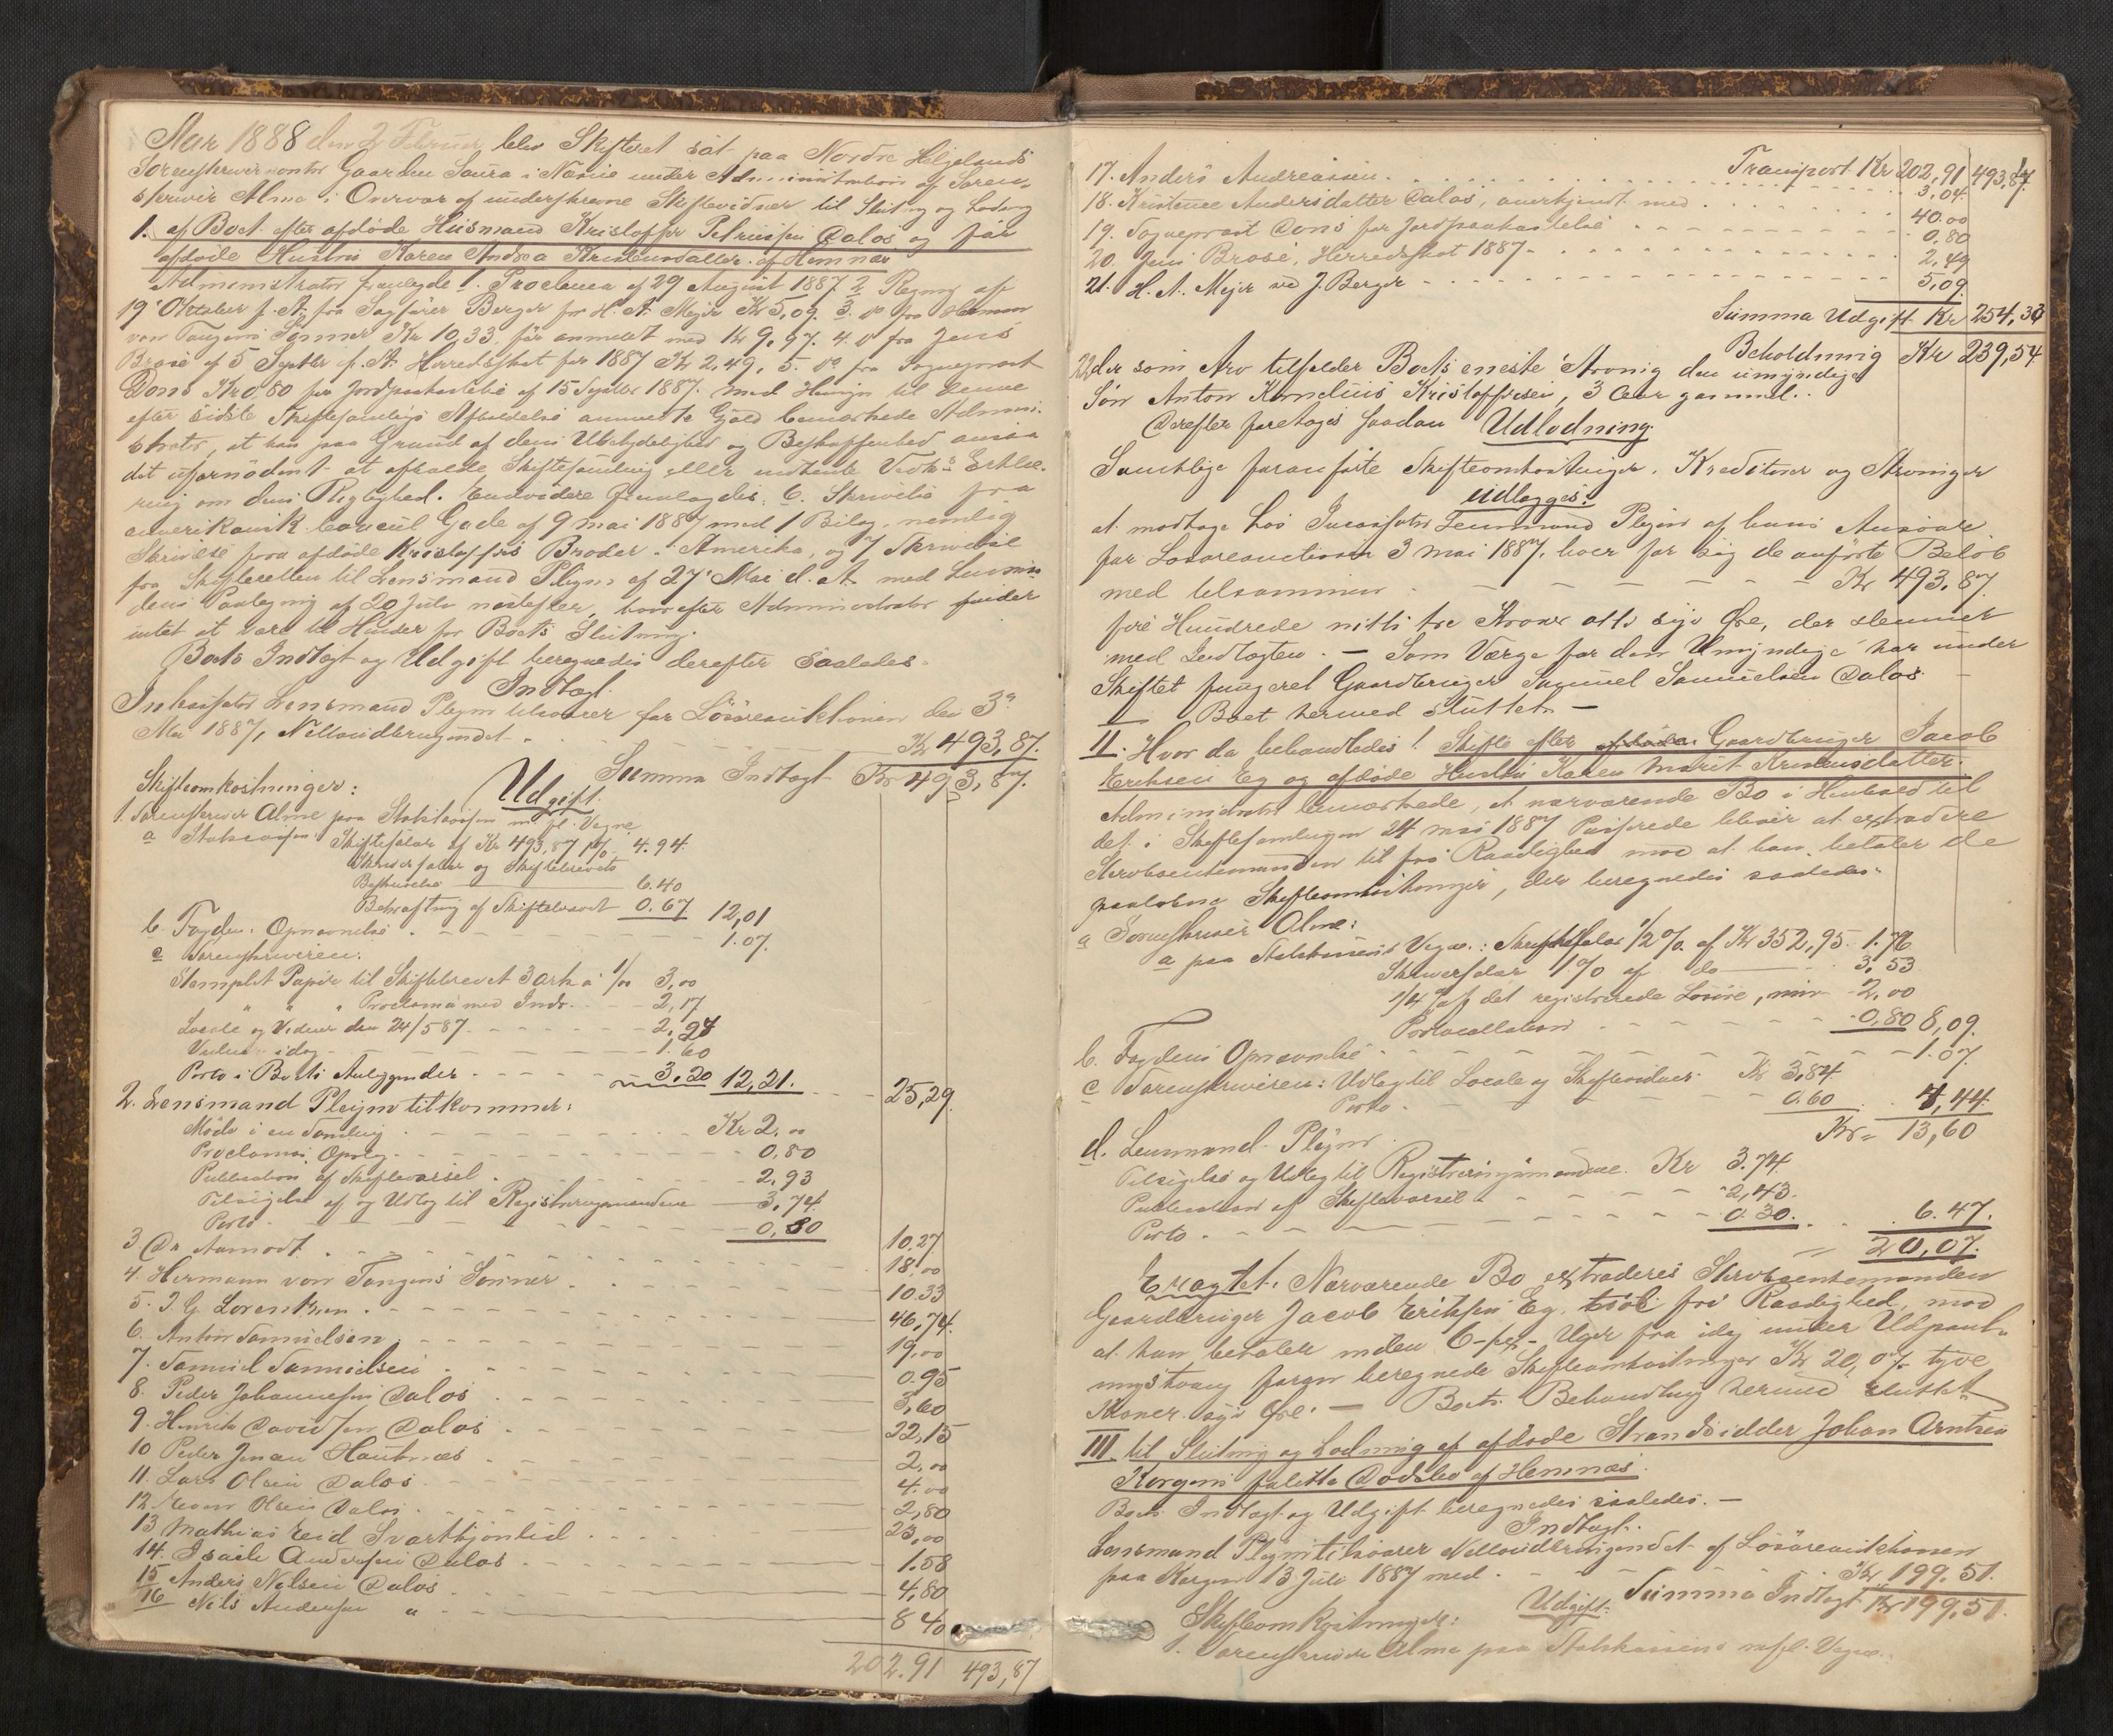 Aar 1888 den 2 Februar blev Skifteret sat paa Nordre Helgelands
Sorenskriverkontor Gaarden Saura i Næsne under Administration af Soren-
skriver Alme i Overvær af underskrevne Skiftevidner til Slutning og Lodning
1. af Boet efter afdöde Husmand Kristoffer Petrussen Dalos og før
afdöde Hustru Karen Andrea Kristensdatter af Hemnæs
Administrator fremlagde 1. Proclama af 29 August 1887 2 Regning af
19 Oktober f. A. fra Sagfører Berger for H. A. Mejer Kr 5,09. 3. do fra Herman
von Tangens Sønner Kr 10,33, før anmeldt med Kr 9,97. 4. do fra Jens
Brose af 5 Septbr f. A. Herredsskat for 1887 Kr 2,49, 5. do fra Sogneprest
Dons Kr 0,80 for Jordpaakastelse af 15 Septbr 1887. Med Hensyn til denne
efter sidste Skiftesamlings Afholdelse anmeldte Gjæld bemærkede Admini-
strator, at han paa Grund af dens Ubetydelighed og Beskaffenhed ansaa
det ufornödent at afholde Skiftesamling eller indhente Vedk.s Erklæ-
ring om dens Rigtighed. Endvidere fremlagdes: 6. Skrivelse fra
amerikansk Consul Gade af 9 Mai 1887 med 1 Bilag, nemlig
Skrivelse fra afdöde Kristoffers Broder i Amerika, og 7 Skrivelse
fra Skifteretten til Lensmand Plejm af 27 Mai d. A. med Lensman-
dens Paategning af 20 Juli næstefter, hvorefter Administrator fandt
intet at være til Hinder for Boets Slutning.
Boets Indtægt og Udgift beregnedes derefter saaledes.
Indtægt.
Inkassator Lensmand Plejm tilsvarer for Lösöreauktionen den 3die
Mai 1887, Nettoudbringendet - Kr 493,87.
Summa Indtægt Kr 493,87.
Udgift.
Skifteomkostninger:
1. Sorenskriver Alme paa Statskassen m. fl. Vegne
a Statskassen Skiftesalær af Kr 493,87 1% 4.94
Skriversalær og Skiftebrevets
Beskrivelse 6.40
Bekræftning af Skiftebrevet 0.67 12,01
b. Fogden: Opnævnelse 1.07.
c Sorenskriveren:
Stemplet Papir til Skiftebrevet 3 ark à 1/00 3,00
" " " Proclama med Indr. 2,17
Locale og Vidner den 24/5 87 2,24
Vidner idag 1.60
Porto i Boets Anliggender 3.20 12,21. 25,29
2. Lensmand Plejm tilkommer:
Møde i en Samling Kr 2.00
Proclamas Oplæs. 0,80
Publication af Skiftevarsel 2,93
Tilsigelse af og Udlæg til Registreringsmændene 3,74
Porto 0,80 10.27
3 Dr Aamodt 18,00
4. Hermann von Tangens Sönner 10.33
5. J. G. Lorentzen 46,74
6. Anton Samuelsen 19,00
7. Samuel Samuelsen 0.95
8. Peder Johannesen Dalos 3,60
9. Henrik Davidsen Dalos 22,15
10 Peder Jonan Hautnæs 2,00
11. Lars Olsen Dalos 4.00
12 Olsen Dalos 2,80
13 Mathias Eid Svarthjönlid 23,00
14. Isach Andersen Dalos 1.58
15 Anders Nelsen Dalos 4,80
16 Nils Andersen " 8 40
202.91 493,87
Transport Kr 202,91 493,87
17. Anders Andreassen 3,04
18. Kristence Andersdatter Dalos, anerkjendt med 40.00
19. Sogneprest Dons for Jordpaakastelse 0,80
20. Jens Brose, Herredsskat 1887 2,49
21. H. A. Mejer ved J. Berger 5,09
Summa Udgift Kr 254,33
Beholdning Kr 239,54
22 der som Arv tilfalder Boets eneste Arving den umyndige
Sön Anton Kornelius Kristoffersen, 3 Aar gammel.
Derefter foretages saadan Udlodning.
Samtlige foranførte Skifteomkostninger, Kreditorer og Arvinger
udlægges:
at modtage hos Incassator Lensmand Plejm af hans Ansvar
for Lösöreauctionen 3 Mai 1887, hver for sig de anförte Belöb
med tilsammen Kr 493.87.
fire Hundrede nitti tre Kroner otti syv Øre, der stemmer
med Indtægten. — Som Værge for den Umyndige har under
Skiftet fungeret Gaardbruger Samuel Samuelsen Dalos
— Boet hermed sluttet —
II. Hvor da behandledes 1. Skifte efter afdöde Gaardbruger Jacob
Eriksen Eg og afdöde Hustru Karen Marit Kristensdatter.
Administrator bemærkede, at nærværende Bo i Henhold til
det i Skiftesamlingen 24 Mai 1887 Passerede bliver at extradere
Stervboenkemanden til fri Raadighed mod at han betaler de
paaløbne Skifteomkostninger, der beregnedes saaledes:
a Sorenskriver Alme:
a paa Statskassens Vegne: Skiftesalær 1/2 % af Kr 352,95. 1.76
Skriversalær 1% af do 3,53
1/4 % af det registrerede Lösöre, min 2,00
Protocollation 0,80 8,09.
b. Fogdens Opnævnelse 1.07
c Sorenskriveren: Udlæg til Locale og Skiftevidner Kr 3,84
Porto 0.60 4,44
Kr 13,60
d. Lensmand Plejm
Tilsigelse og Udlæg til Registreringsmændene. Kr 3.74
Publication af Skiftevarsel 2,43.
Porto 0.30. 6.47.
20,07.
Eragtet: Nærværende Bo extraderes Stervboenkemanden
Gaardbruger Jacob Eriksen Eg til fri Raadighed, mod
at han betaler inden 6-sex- Uger fra idag under Udpant-
ningstvang foran beregnede Skifteomkostninger Kr 20,07 tyve
Kroner syv Øre. — Boets Behandling hermed sluttet
III. til Slutning og Lodning af afdöde Strandsidder Johan Arntsen
Korgens faldte Dödsbo af Hemnæs.
Boets Indtægt og Udgift beregnedes saaledes. —
Indtægt.
Lensmand Plejm tilsvarer Nettoudbringendet af Lösöreauktionen
paa Korgen 13 Juli 1887 med Kr 199.51.
Summa Indtægt Kr 199,51.
Udgift:
Skifteomkostninger:
1. Sorenskriver Alme paa Statskassens m. fl. Vegne.